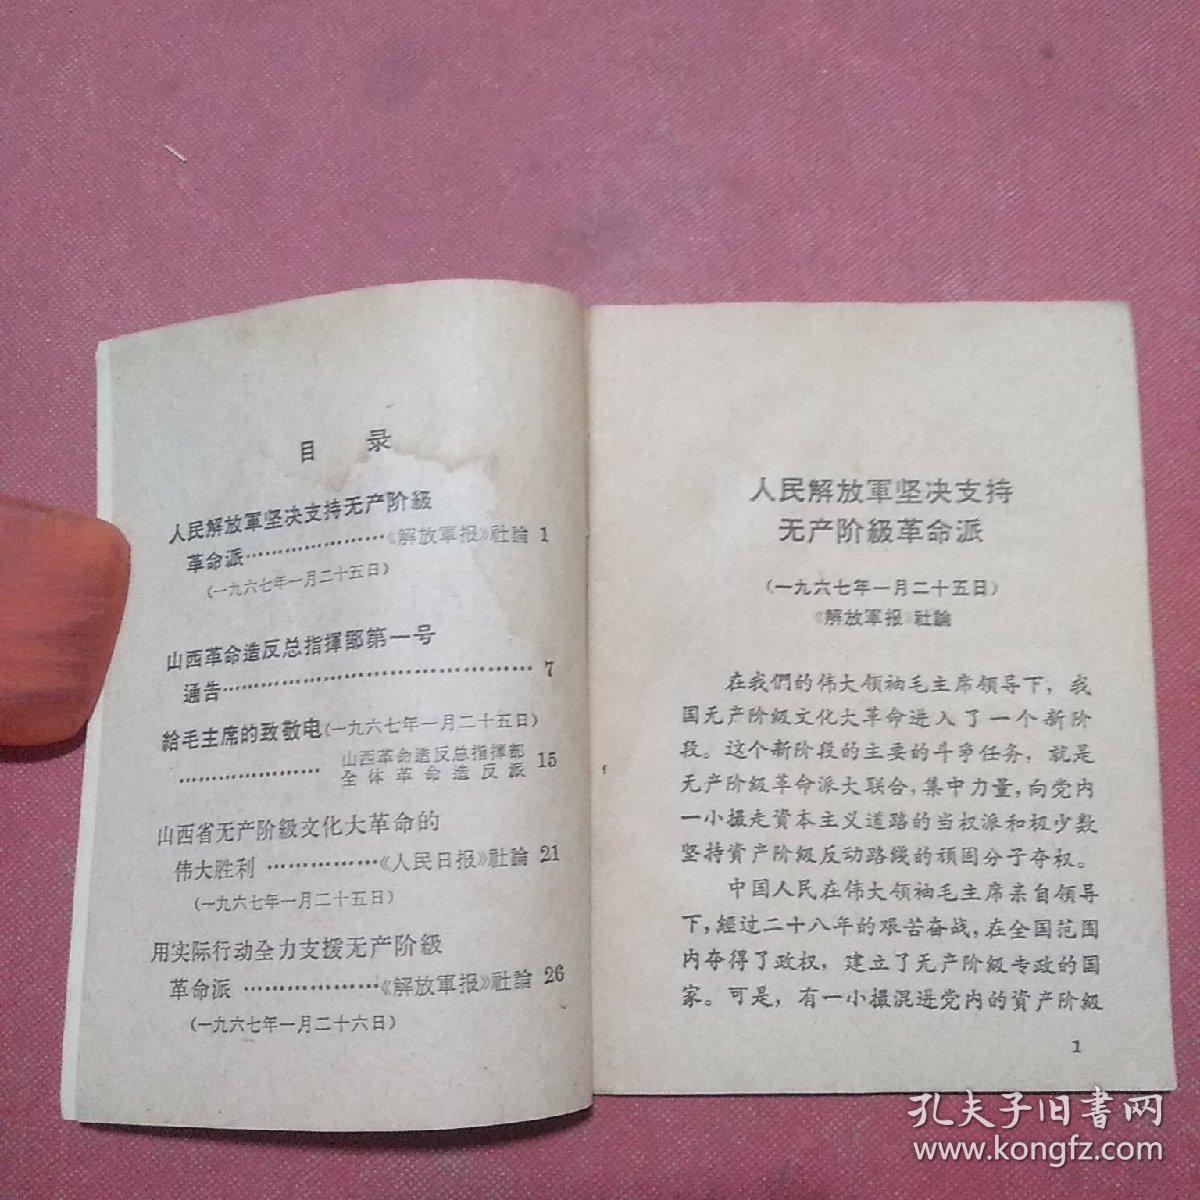 目 录
人民解放軍坚决支持无产阶級
革命派……………………《解放軍报》社論 1
(一九六七年一月二十五日)
山西革命造反总指揮部第一号
通告…………………………………………… 7
給毛主席的致敬电(一九六七年一月二十五日)
山西革命造反总指揮部
…………………… 全体革命造反派 15
山西省无产阶級文化大革命的
伟大胜利 ………………《人民日报》社論 21
(一九六七年一月二十五日)
用实际行动全力支援无产阶級
革命派 …………………《解放軍报》社論 26
(一九六七年一月二十六日)
人民解放軍坚决支持
无产阶級革命派
(一九六七年一月二十五日)
《解放軍报》社論
在我們的伟大领袖毛主席领导下，我
国无产阶级文化大革命进入了一个新阶
段。这个新阶段的主要的斗爭任务，就是
无产阶级革命派大联合，集中力量，向党内
一小撮走資本主义道路的当权派和极少数
坚持資产阶級反动路綫的頑固分子夺权。
中国人民在伟大领袖毛主席亲自领导
下，經过二十八年的艰苦奋战，在全国范围
内夺得了政权，建立了无产阶級专政的国
家。可是，有一小撮混进党内的資产阶級
1
孔夫子旧書网
www.kongfz.com